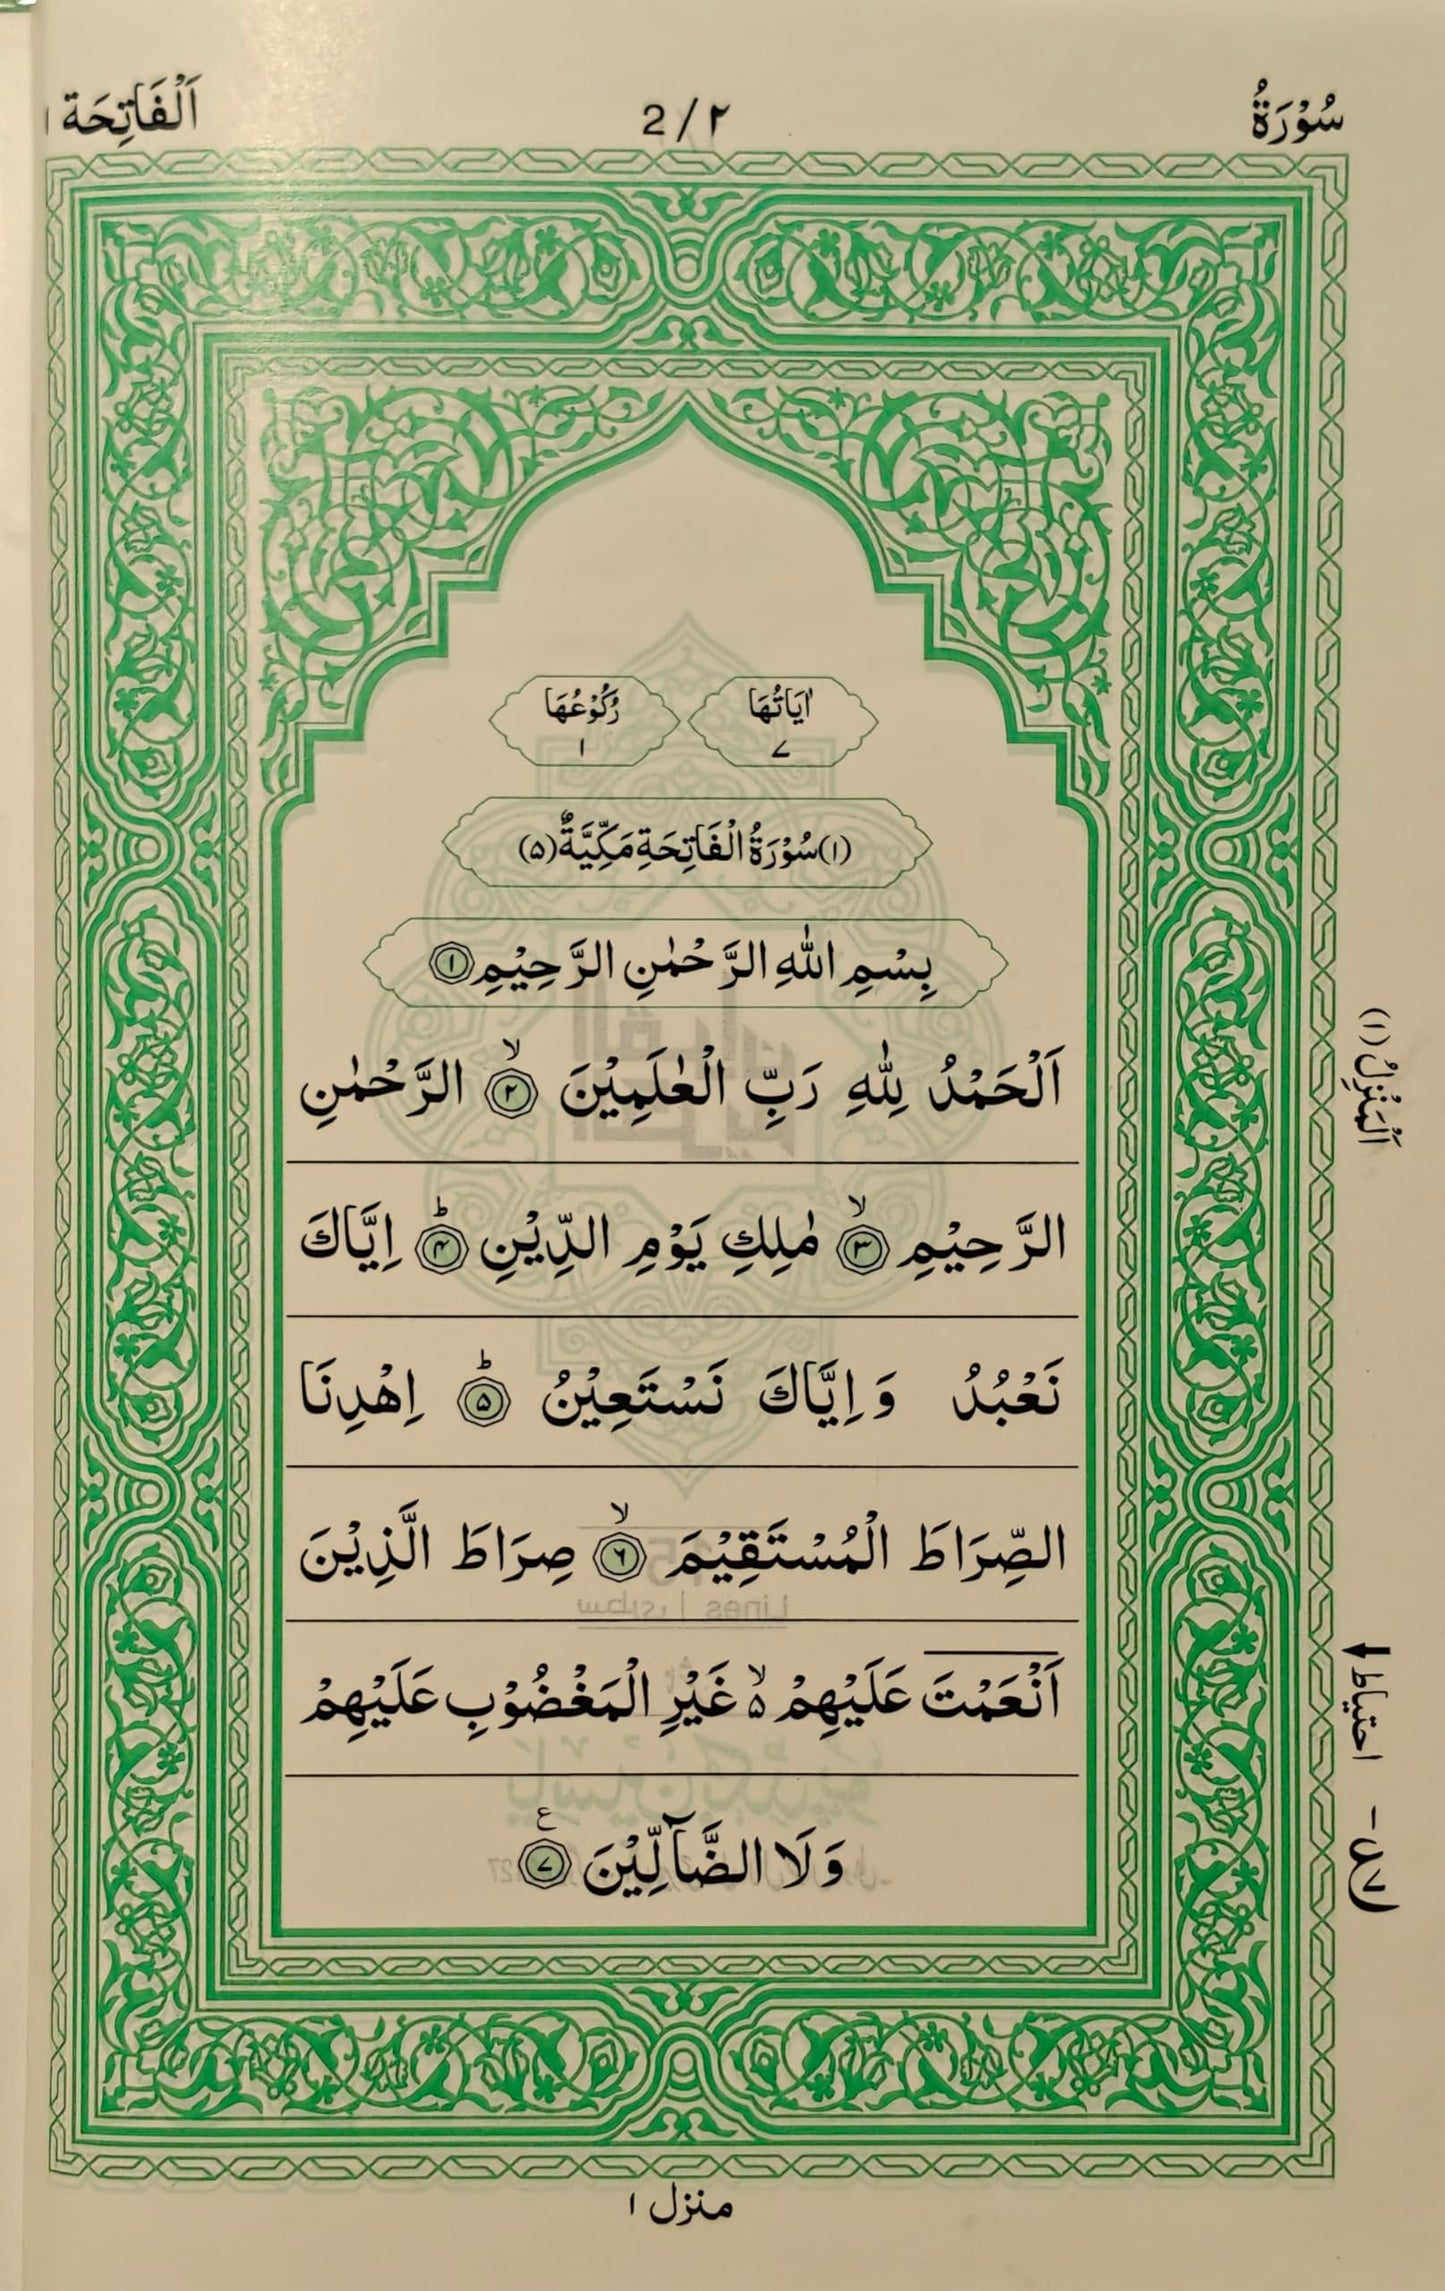 سُوْرَةُ 2/٢ اَلْفَاتِحَة ١
اٰيَاتُهَا ٧ رُكُوْعُهَا ١
(١) سُوْرَةُ الْفَاتِحَةِ مَكِّيَّةٌ (٥)
بِسْمِ اللّٰهِ الرَّحْمٰنِ الرَّحِيْمِ ١
اَلْحَمْدُ لِلّٰهِ رَبِّ الْعٰلَمِيْنَ ۙ ٢ الرَّحْمٰنِ
الرَّحِيْمِ ۙ ٣ مٰلِكِ يَوْمِ الدِّيْنِ ؕ ٤ اِيَّاكَ
نَعْبُدُ وَ اِيَّاكَ نَسْتَعِيْنُ ؕ ٥ اِهْدِنَا
الصِّرَاطَ الْمُسْتَقِيْمَ ۙ ٦ صِرَاطَ الَّذِيْنَ
اَنْعَمْتَ عَلَيْهِمْ ۙ۵ غَيْرِ الْمَغْضُوْبِ عَلَيْهِمْ
وَلَا الضَّآلِّيْنَ ٧ ع
اَلْمَنْزِلُ (١)
احتياط
منزل ١